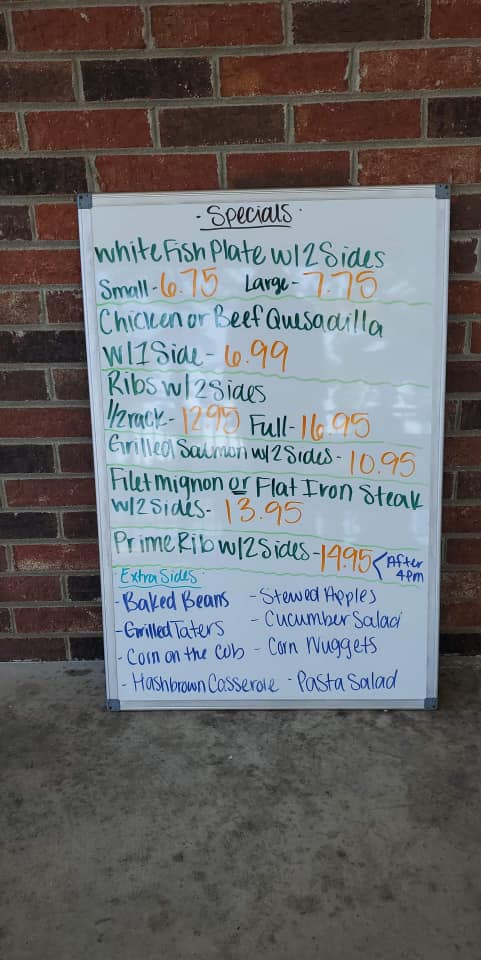 · Specials ·
White Fish Plate w/ 2 Sides
Small - 6.75 Large - 7.75
Chicken or Beef Quesadilla
w/ 1 Side - 6.99
Ribs w/ 2 Sides
1/2 rack - 12.95 Full - 16.95
Grilled Salmon w/ 2 Sides - 10.95
Filet mignon or Flat Iron Steak
w/ 2 Sides - 13.95
Prime Rib w/ 2 Sides - 14.95 < After 4pm
· Extra Sides ·
- Baked Beans - Stewed Apples
- Grilled Taters - Cucumber Salad
- Corn on the Cob - Corn Nuggets
- Hashbrown Casserole - Pasta Salad